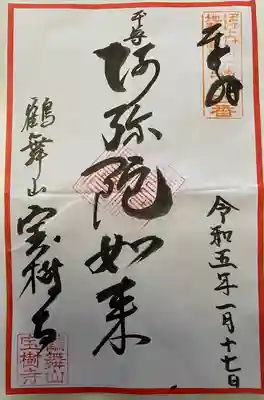 奉拝
令和五年一月十七日
本尊
阿弥陀如来
鶴舞山
宝樹寺
鶴舞山
宝樹寺